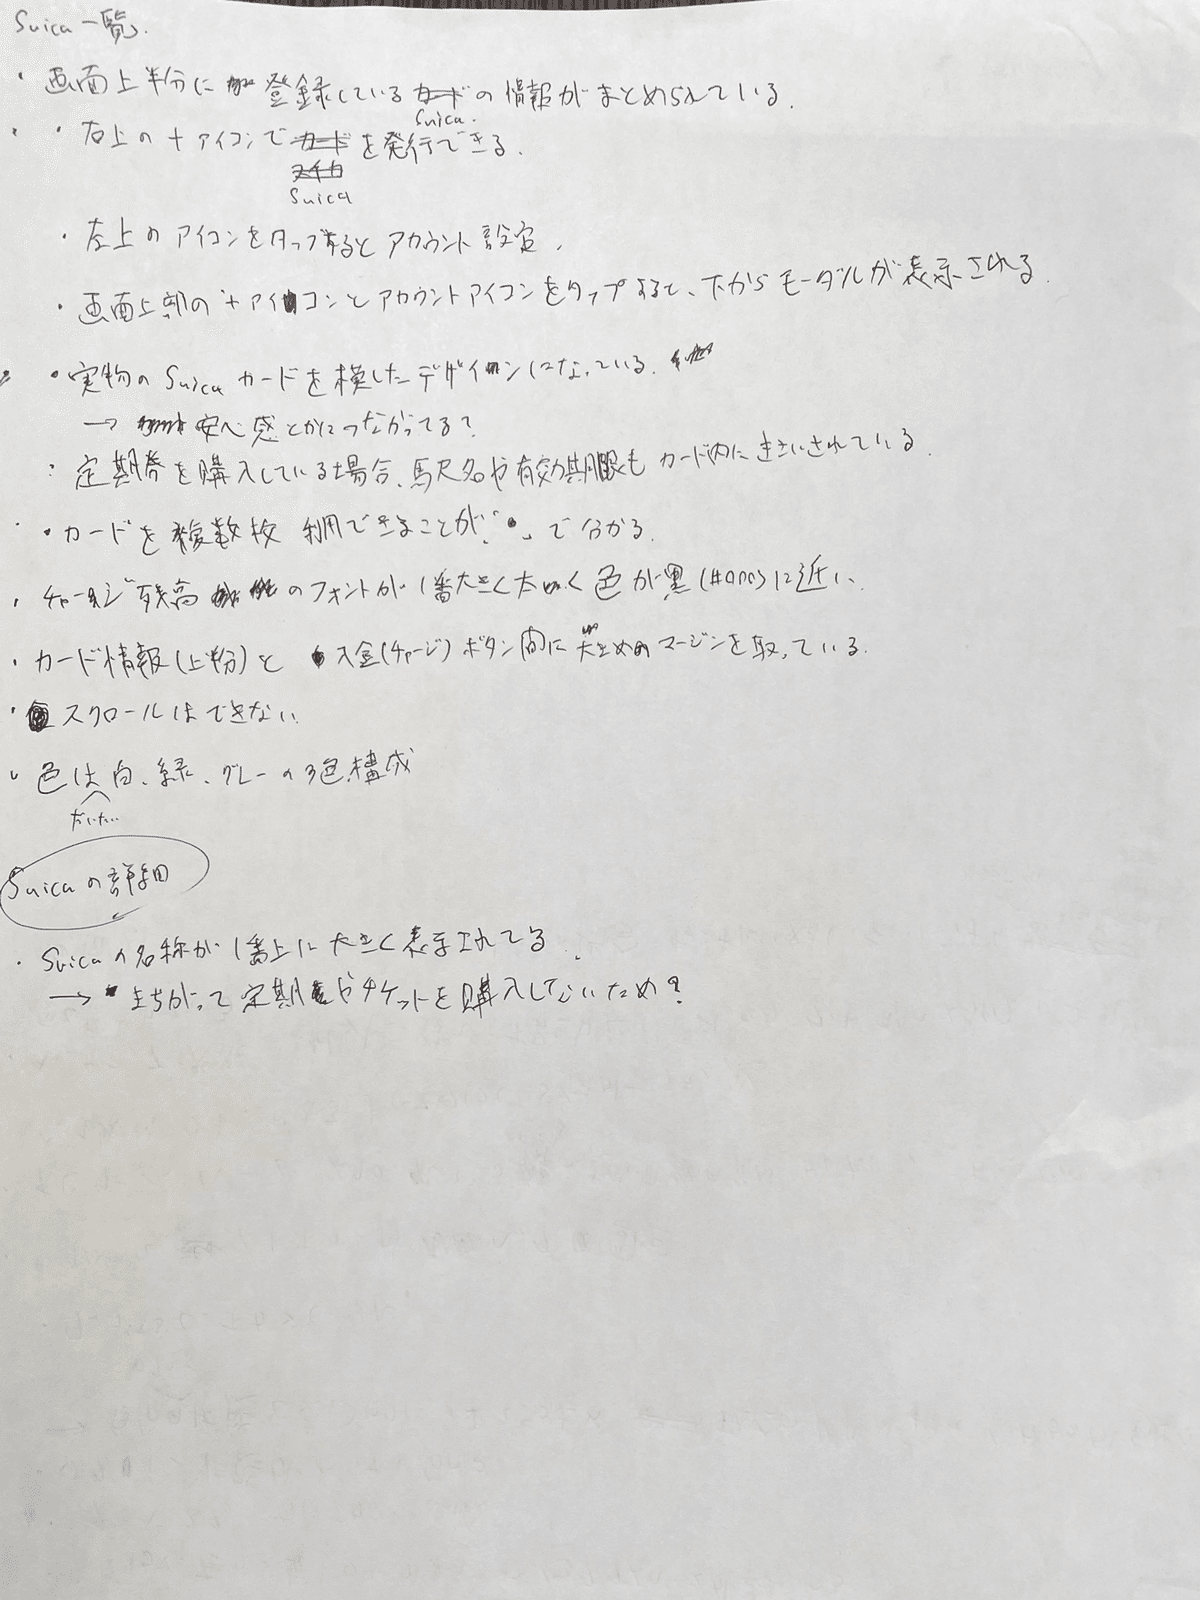 Suica一覧
・画面上半分に登録しているSuicaの情報がまとめられている.
・右上の+アイコンでSuicaを発行できる.
・左上のアイコンをタップするとアカウント設定.
・画面上部の+アイコンとアカウントアイコンをタップすると、下からモーダルが表示される.
・実物のSuicaカードを模したデザインになっている.
→安心感とかにつながってる?
・定期券を購入している場合、駅名や有効期限もカード内にきさいされている.
・カードを複数枚利用できることが「・」で分かる.
・チャージ残高のフォントが1番大きく太く色が黒(#000)に近い.
・カード情報(上半分)と入金(チャージ)ボタン間に大きめのマージンを取っている.
・スクロールはできない.
・色はだいたい白、緑、グレーの3色構成
Suicaの詳細
・Suicaの名称が1番上に大きく表示されてる.
→まちがって定期やチケットを購入しないため?